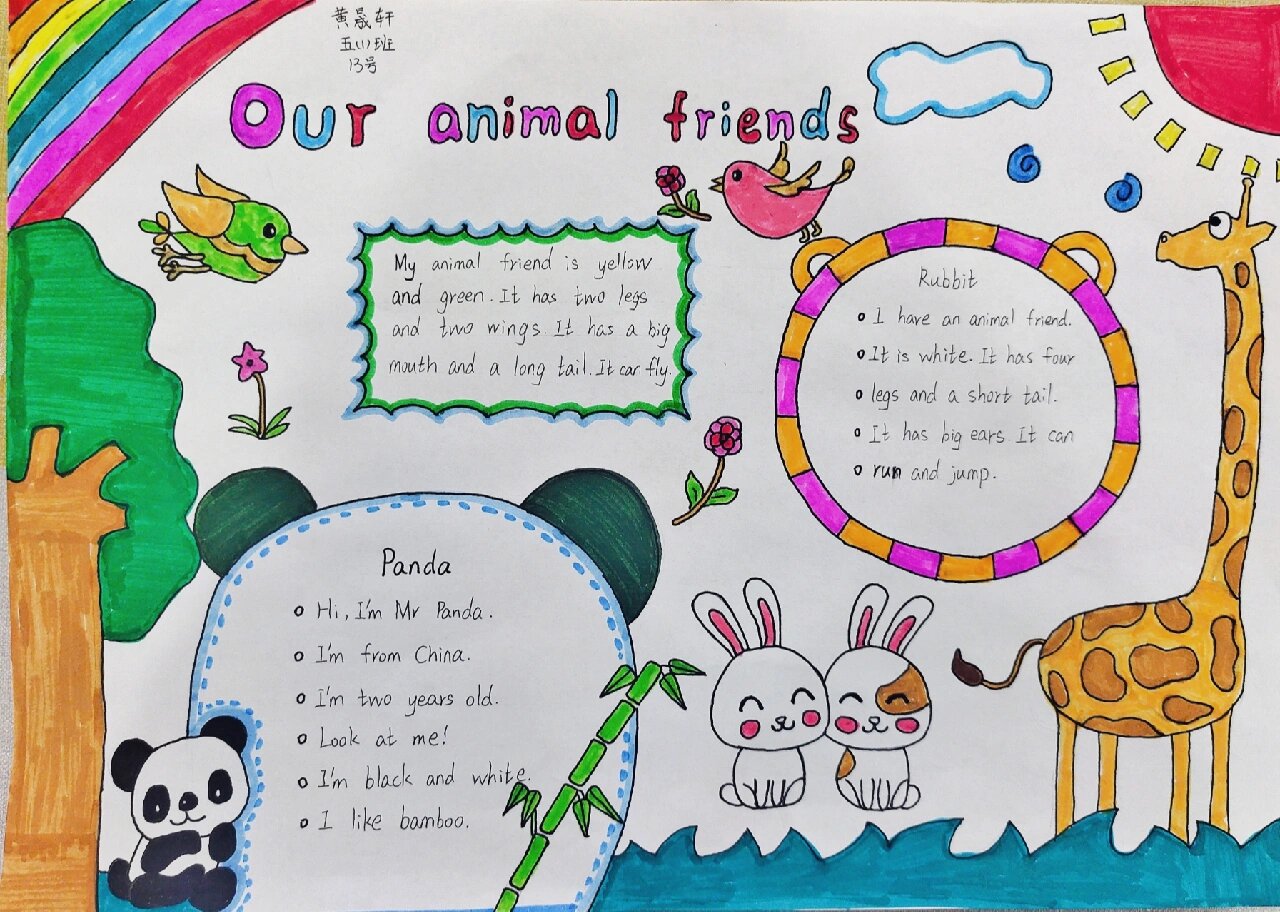 黄晟轩
五(1)班
13号
Our animal friends
My animal friend is yellow
and green. It has two legs
and two wings. It has a big
mouth and a long tail. It can fly.
Rubbit
I have an animal friend.
It is white. It has four
legs and a short tail.
It has big ears. It can
run and jump.
Panda
Hi, I'm Mr Panda.
I'm from China.
I'm two years old.
Look at me!
I'm black and white.
I like bamboo.